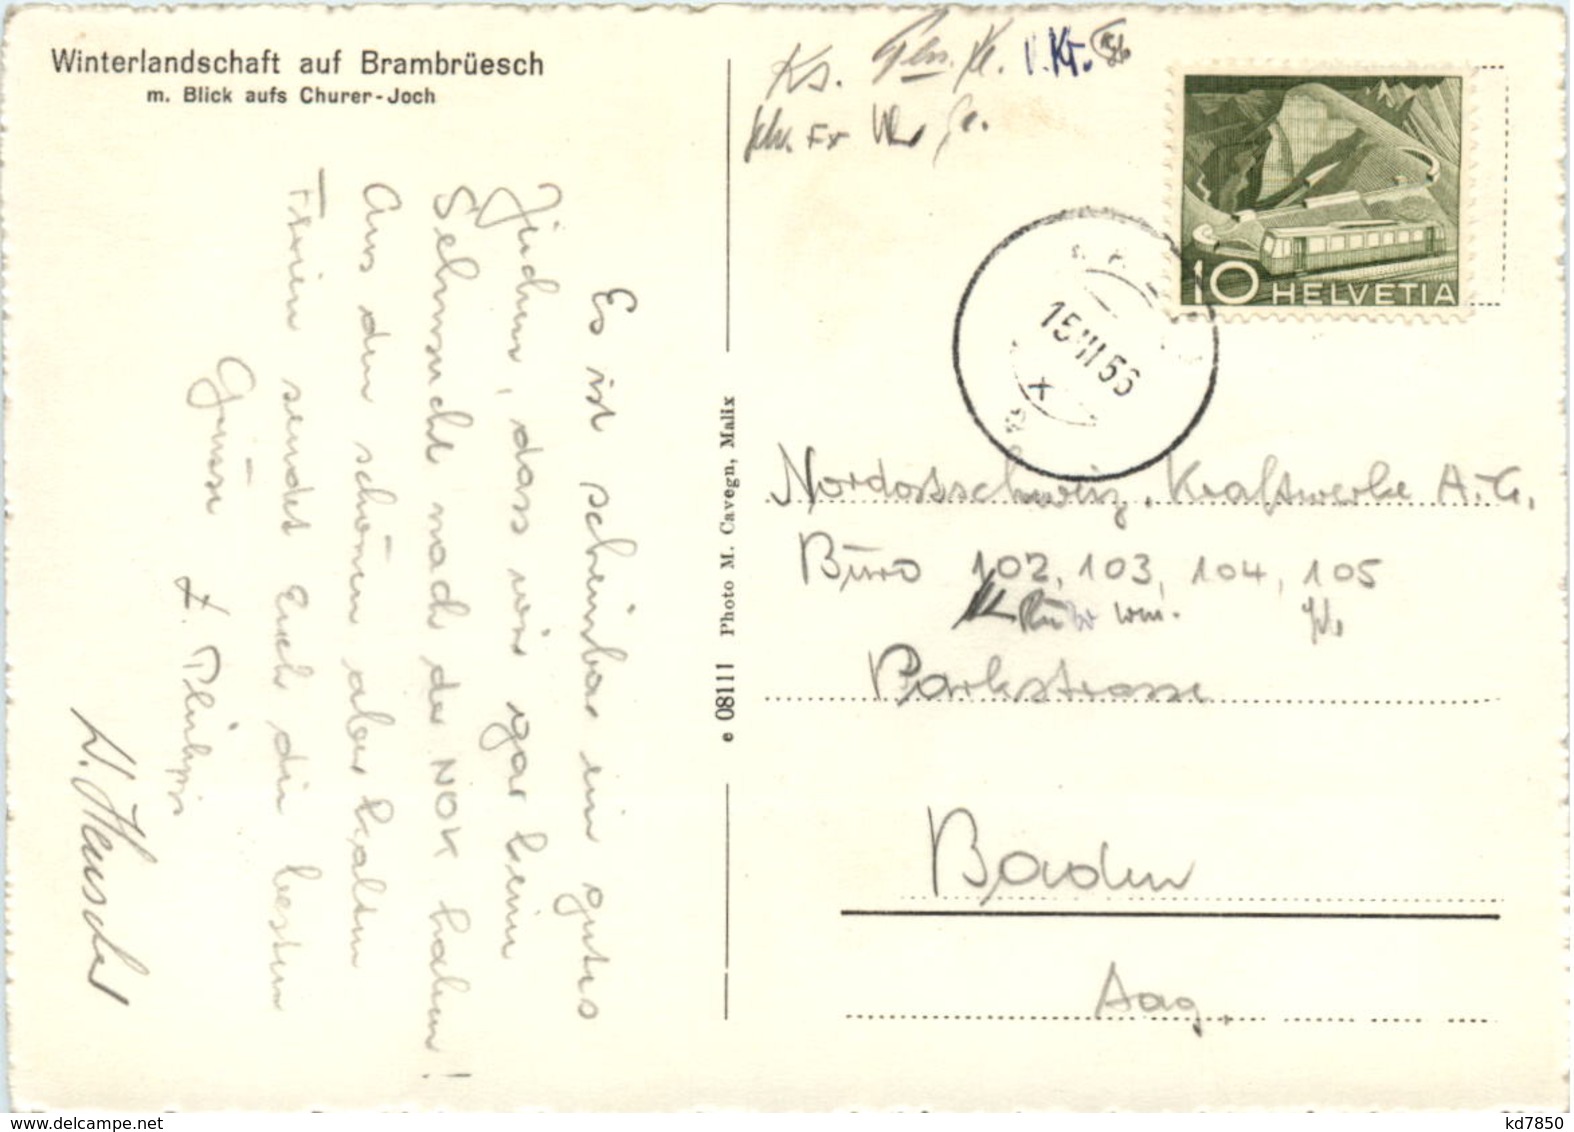 Winterlandschaft auf Brambrüesch
m. Blick aufs Churer-Joch
Es ist scheinbar ein gutes
Zeichen, dass wir gar keine
Sehnsucht nach der NOK haben!
Aus den schönen aber kalten
Ferien sendet Euch die besten
Grüsse
e 08111 Photo M. Cavegn, Malix
Ks.
10 HELVETIA
15. VII 56
Nordostschweiz. Kraftwerke A.G.
Büro 102, 103, 104, 105
Parkstrasse
Baden
Aag.
www.delcampe.net
kd7850